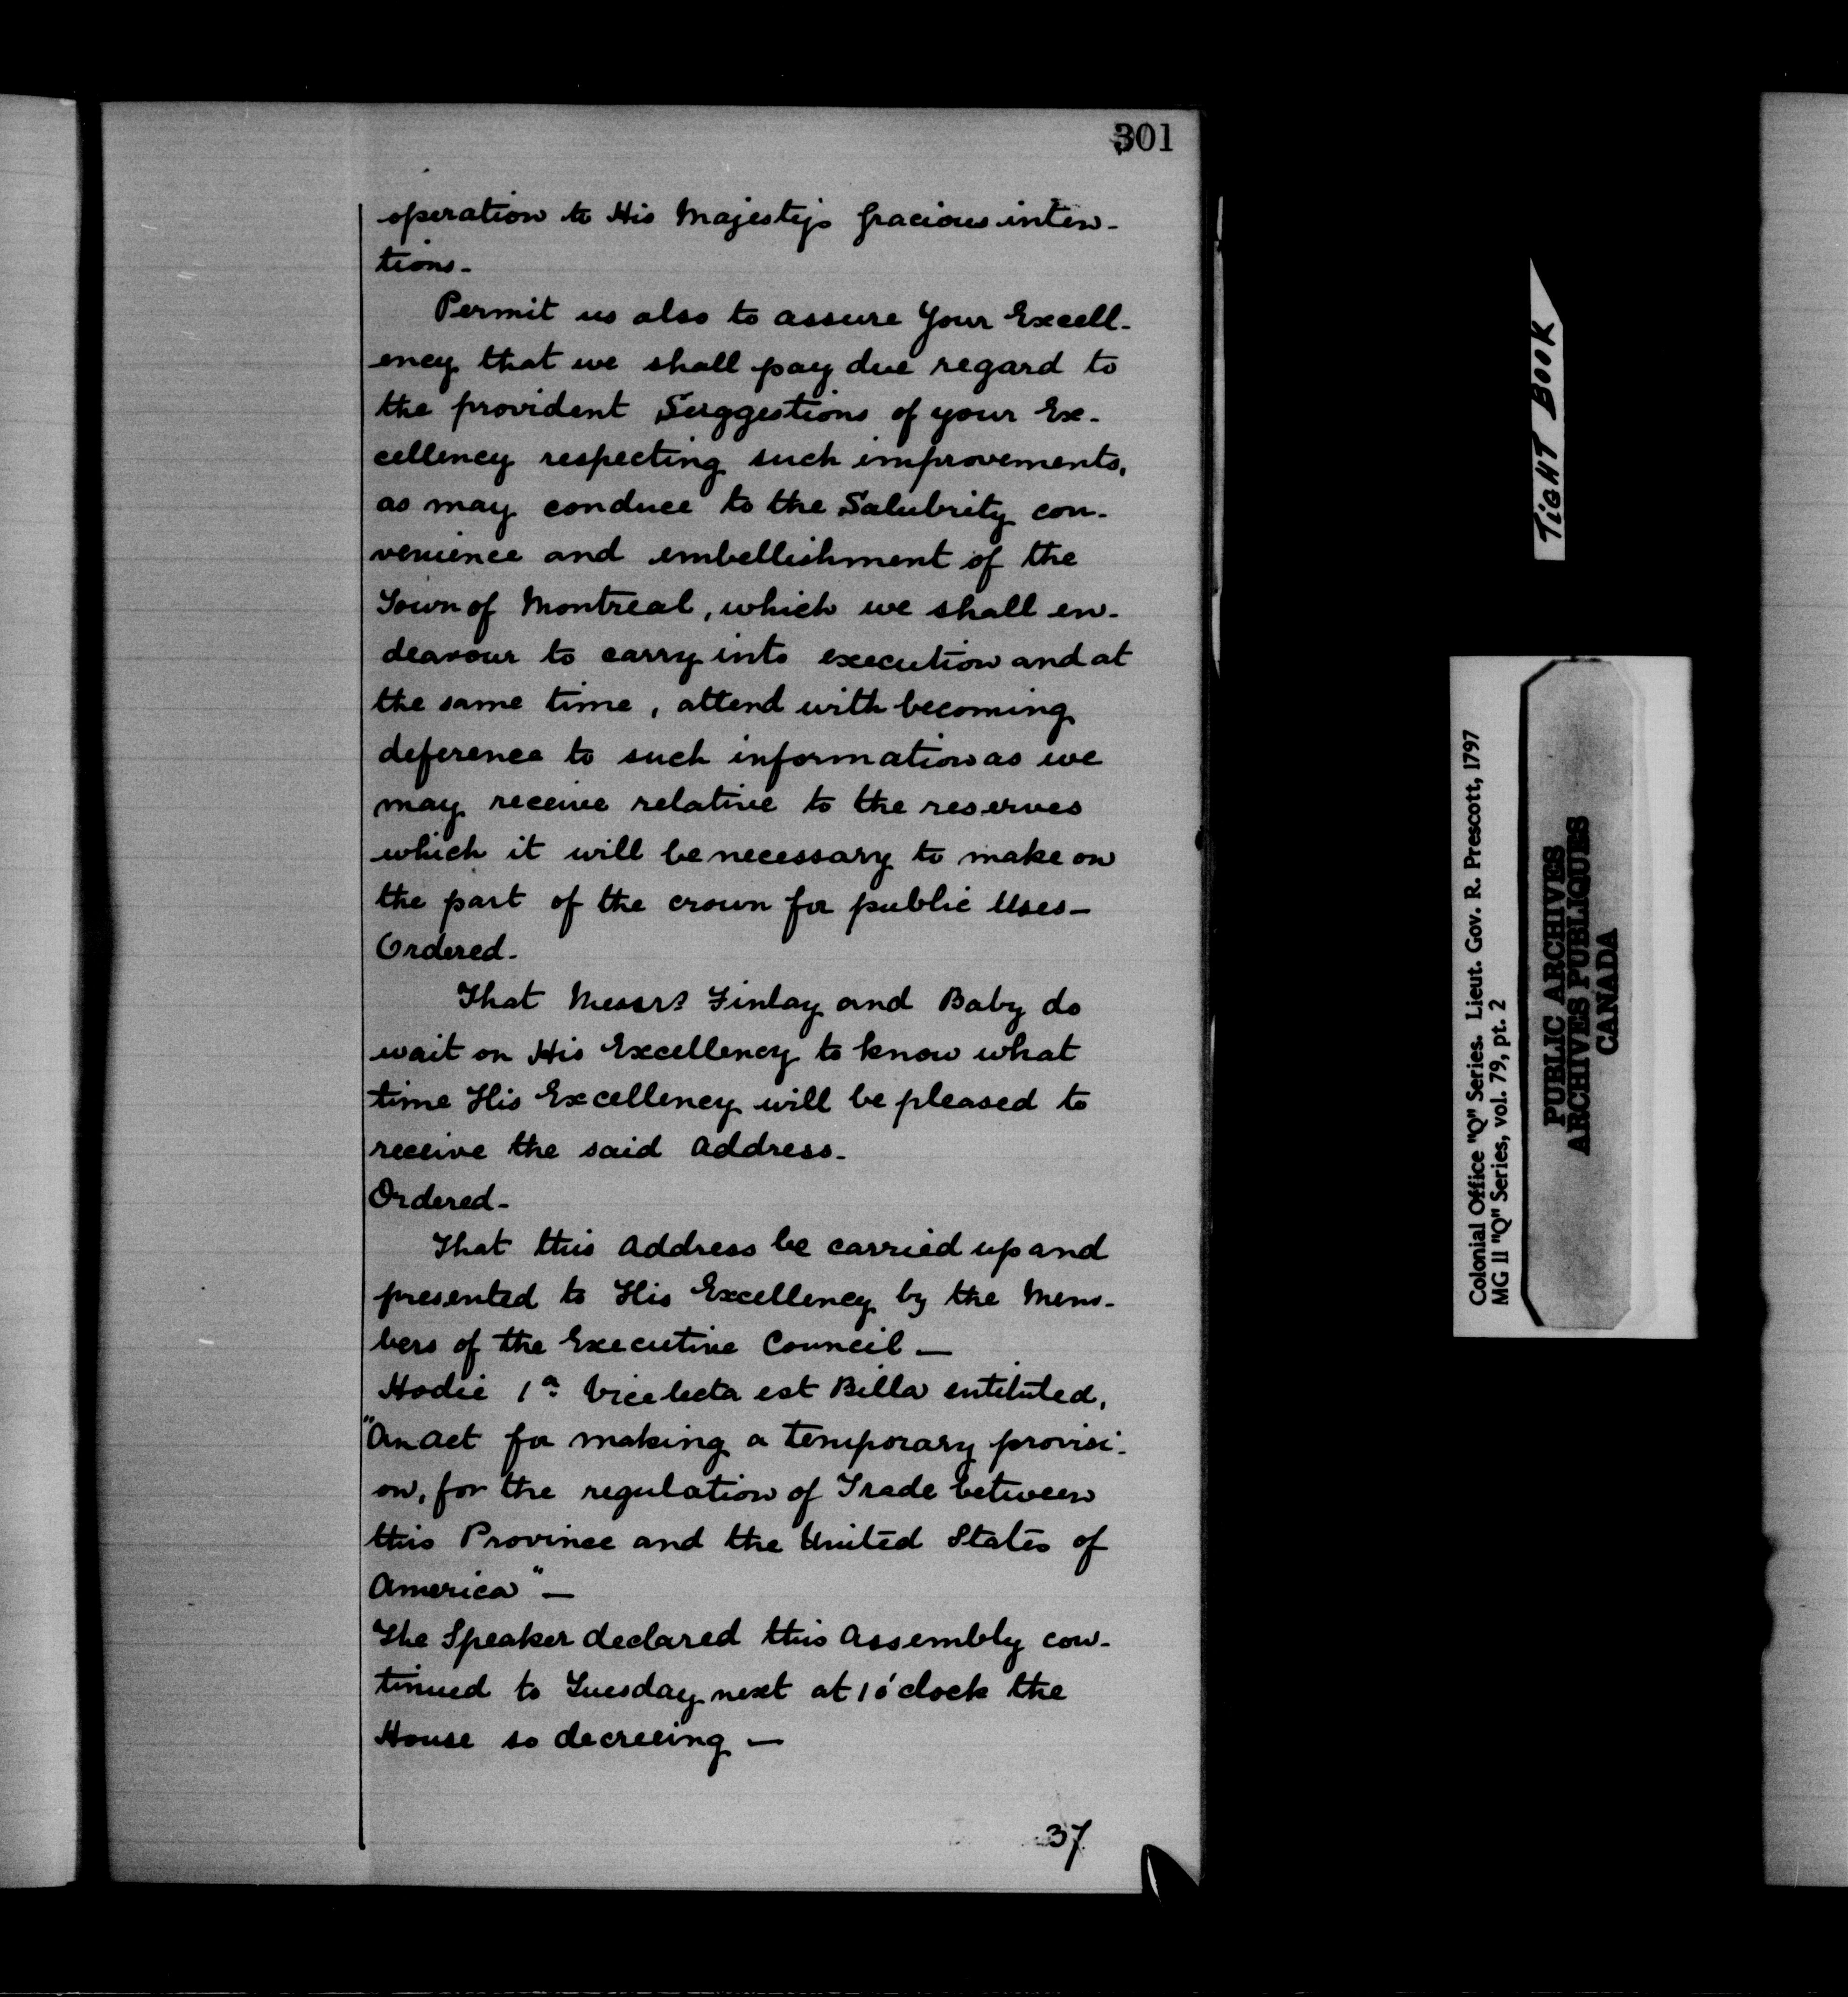 301
operation to His Majesty's gracious inten-
tions-
Permit us also to assure Your Excell-
ency that we shall pay due regard to
the provident Suggestions of your Ex-
cellency respecting such improvements,
as may conduce to the Salubrity con-
venience and embellishment of the
Town of Montreal, which we shall en-
deavour to carry into execution and at
the same time, attend with becoming
deference to such information as we
may receive relative to the reserves
which it will be necessary to make on
the part of the crown for public Uses-
Ordered-
That Messrs Finlay and Baby do
wait on His Excellency to know what
time His Excellency will be pleased to
receive the said Address-
Ordered-
That this Address be carried up and
presented to His Excellency by the Mem-
bers of the Executive Council-
Hodie 1a Vice lecta est Billa entituled,
"An Act for making a temporary provisi-
on, for the regulation of Trade between
this Province and the United States of
America"-
The Speaker declared this Assembly con-
tinued to Tuesday next at 1 o'clock the
House so decreeing-
37
TIGHT BOOK
Colonial Office "Q" Series. Lieut. Gov. R. Prescott, 1797
MG 11 "Q" Series, vol. 79, pt. 2
PUBLIC ARCHIVES
ARCHIVES PUBLIQUES
CANADA